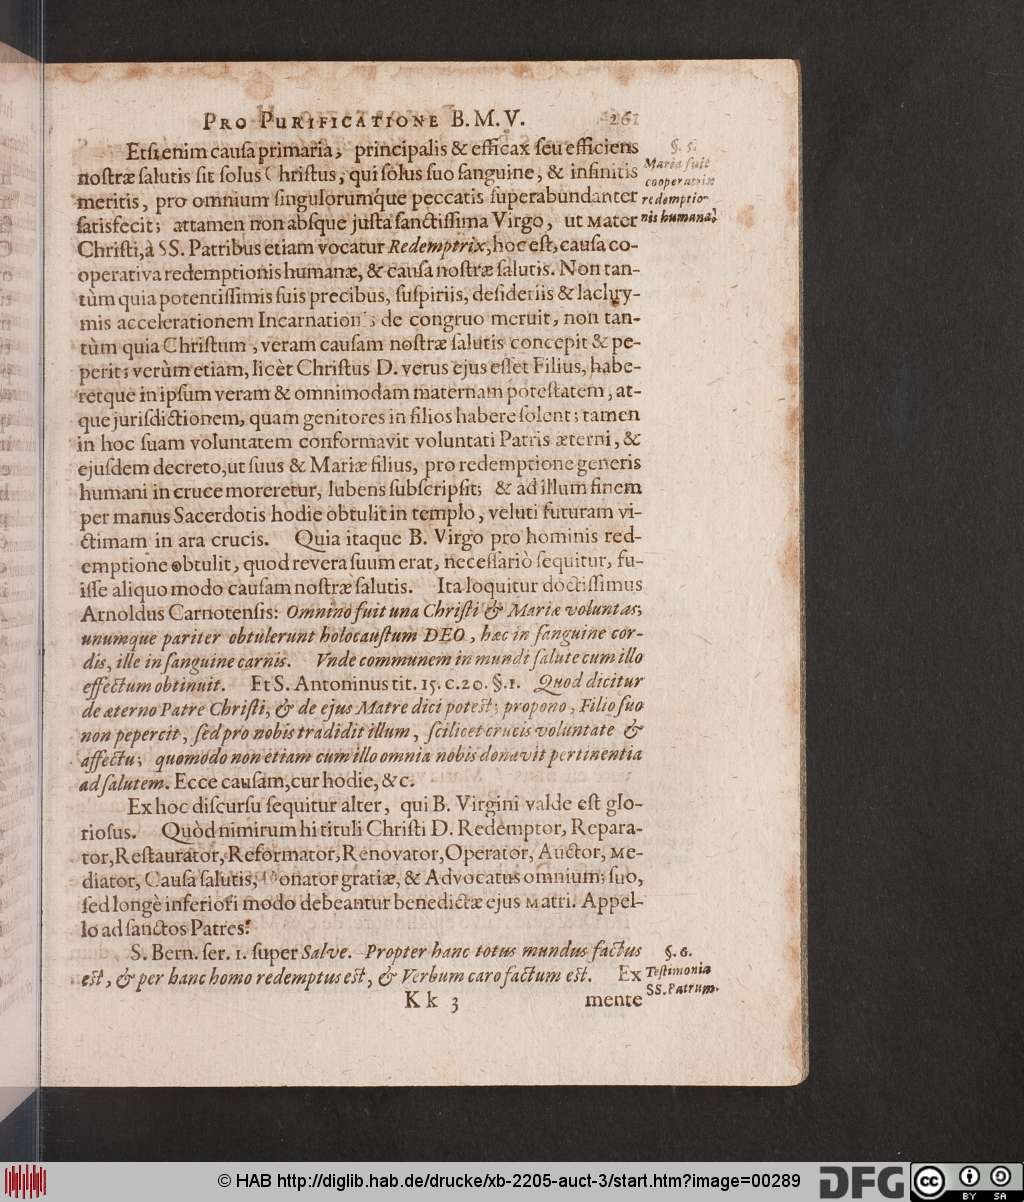 PRO PURIFICATIONE B. M. V. 261
Etsi enim causa primaria, principalis & efficax seu efficiens
nostræ salutis sit solus Christus, qui solus suo sanguine, & infinitis
meritis, pro omnium singulorumq́ue peccatis superabundanter
satisfecit; attamen non absque justa sanctissima Virgo, ut Mater
Christi, à SS. Patribus etiam vocatur Redemptrix, hoc est, causa co-
operativa redemptionis humanæ, & causa nostræ salutis. Non tan-
tùm quia potentissimis suis precibus, suspiriis, desideriis & lachry-
mis accelerationem Incarnationis de congruo meruit, non tan-
tùm quia Christum, veram causam nostræ salutis concepit & pe-
perit; verùm etiam, licèt Christus D. verus ejus esset Filius, habe-
retque in ipsum veram & omnimodam maternam potestatem, at-
que jurisdictionem, quam genitores in filios habere solent; tamen
in hoc suam voluntatem conformavit voluntati Patris æterni, &
ejusdem decreto, ut suus & Mariæ filius, pro redemptione generis
humani in cruce moreretur, lubens subscripsit; & ad illum finem
per manus Sacerdotis hodie obtulit in templo, veluti futuram vi-
ctimam in ara crucis. Quia itaque B. Virgo pro hominis red-
emptione obtulit, quod revera suum erat, necessariò sequitur, fu-
isse aliquo modo causam nostræ salutis. Ita loquitur doctissimus
Arnoldus Carnotensis: Omnino fuit una Christi & Mariæ voluntas;
unumque pariter obtulerunt holocaustum DEO, hæc in sanguine cor-
dis, ille in sanguine carnis. Vnde communem in mundi salute cum illo
effectum obtinuit. Et S. Antoninus tit. 15. c. 20. §. 1. Quod dicitur
de æterno Patre Christi, & de ejus Matre dici potest; propono, Filio suo
non pepercit, sed pro nobis tradidit illum, scilicet crucis voluntate &
affectu; quomodo non etiam cum illo omnia nobis donavit pertinentia
ad salutem. Ecce causam, cur hodie, &c.
Ex hoc discursu sequitur alter, qui B. Virgini valde est glo-
riosus. Quòd nimirum hi tituli Christi D. Redemptor, Repara-
tor, Restaurator, Reformator, Renovator, Operator, Auctor, Me-
diator, Causa salutis, Donator gratiæ, & Advocatus omnium; suo,
sed longè inferiori modo debeantur benedictæ ejus Matri. Appel-
lo ad sanctos Patres.
S. Bern. ser. 1. super Salve. Propter hanc totus mundus factus
est, & per hanc homo redemptus est, & Verbum caro factum est. Ex
Kk 3 mente
§. 5.
Maria fuit
cooperatrix
redemptio-
nis humanæ.
§. 6.
Testimonia
SS. Patrum.
© HAB http://diglib.hab.de/drucke/xb-2205-auct-3/start.htm?image=00289
DFG
cc BY SA